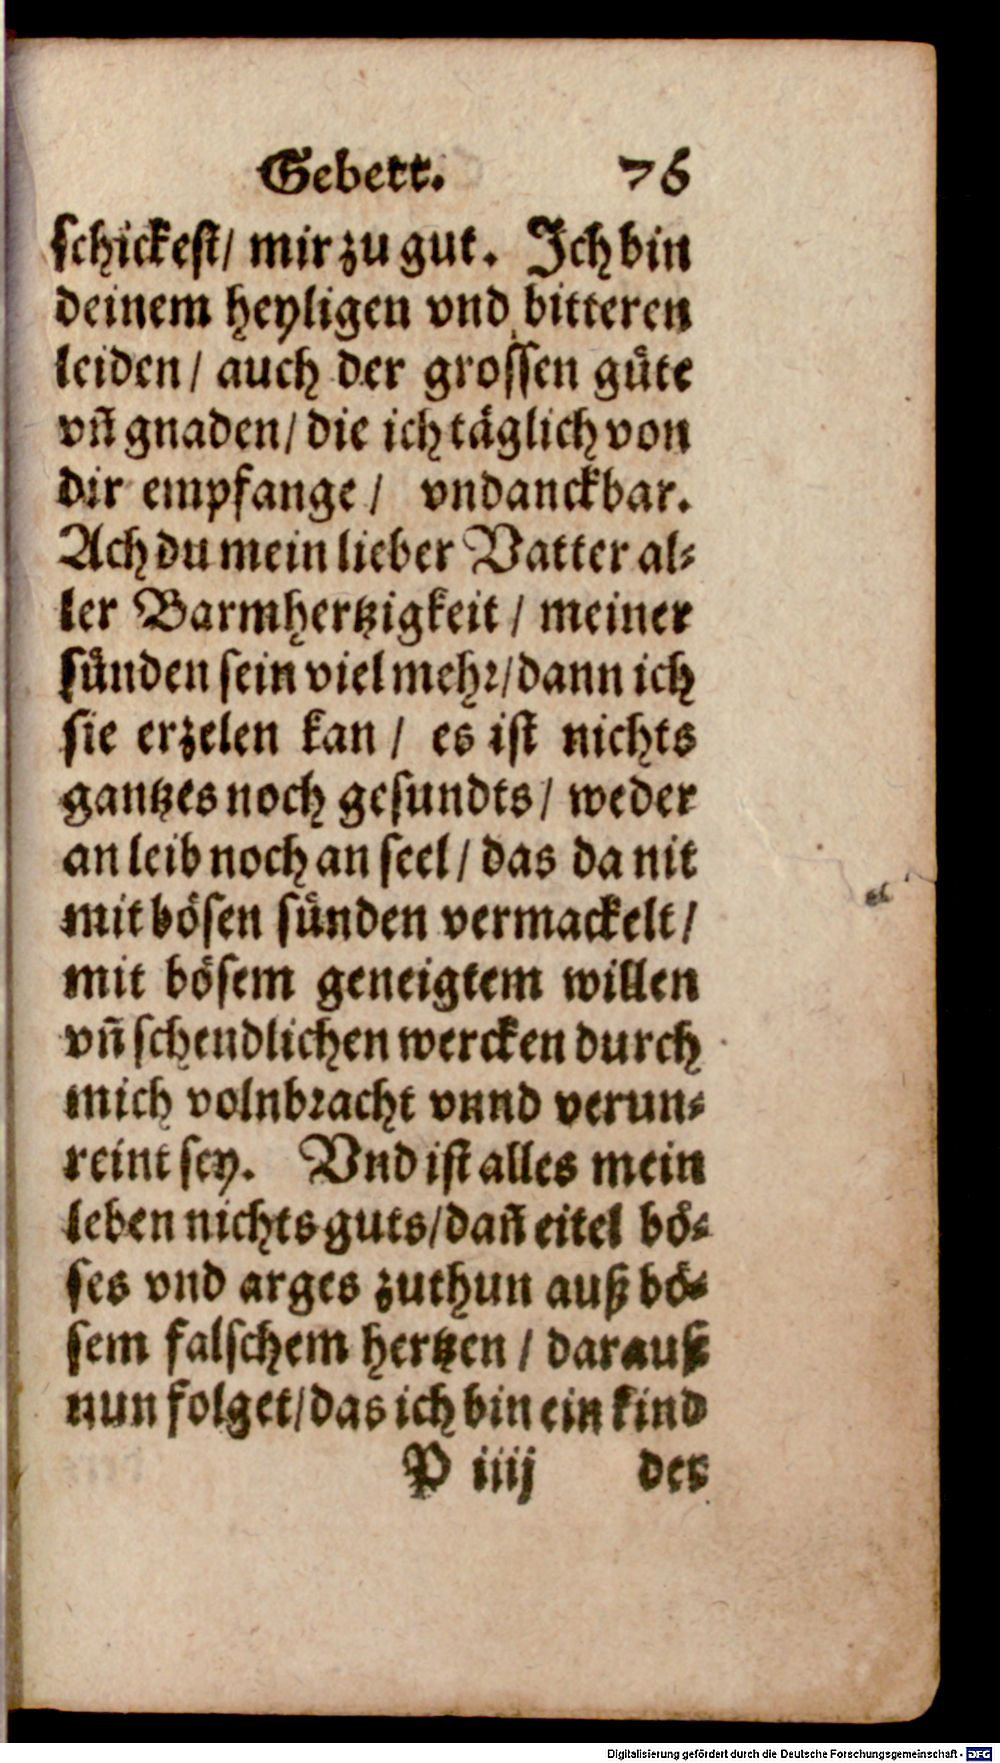 Gebett. 76
schickest/ mir zu gut. Ich bin
deinem heyligen vnd bitteren
leiden/ auch der grossen güte
vñ gnaden/ die ich täglich von
dir empfange/ vndanckbar.
Ach du mein lieber Vatter al-
ler Barmhertzigkeit/ meiner
sünden sein viel mehr/ dann ich
sie erzelen kan/ es ist nichts
gantzes noch gesundts/ weder
an leib noch an seel/ das da nit
mit bösen sünden vermackelt/
mit bösem geneigtem willen
vñ schendlichen wercken durch
mich volnbracht vnnd verun-
reint sey. Vnd ist alles mein
leben nichts guts/ dañ eitel bö-
ses vnd arges zuthun auß bö-
sem falschem hertzen/ darauß
nun folget/ das ich bin ein kind
P iiij der
Digitalisierung gefördert durch die Deutsche Forschungsgemeinschaft - DFG